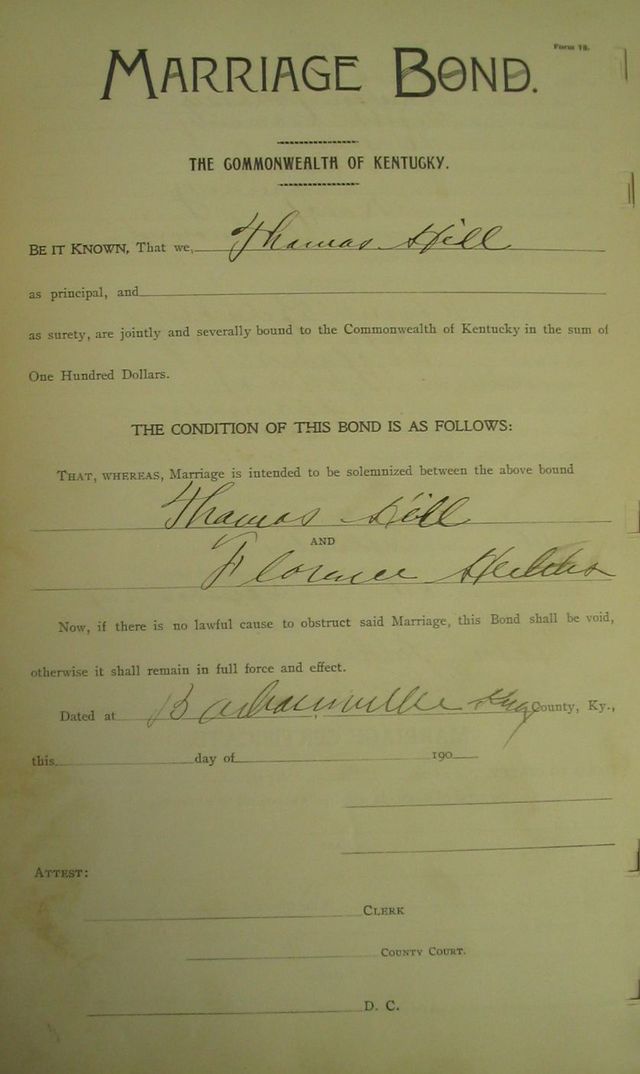 Form 18.
MARRIAGE BOND.
THE COMMONWEALTH OF KENTUCKY.
BE IT KNOWN, That we, Thomas Hill
as principal, and
as surety, are jointly and severally bound to the Commonwealth of Kentucky in the sum of
One Hundred Dollars.
THE CONDITION OF THIS BOND IS AS FOLLOWS:
THAT, WHEREAS, Marriage is intended to be solemnized between the above bound
Thomas Hill
AND
Florence
Now, if there is no lawful cause to obstruct said Marriage, this Bond shall be void,
otherwise it shall remain in full force and effect.
Dated at Barbourville County, Ky.,
this day of 190
ATTEST:
CLERK
COUNTY COURT.
D. C.